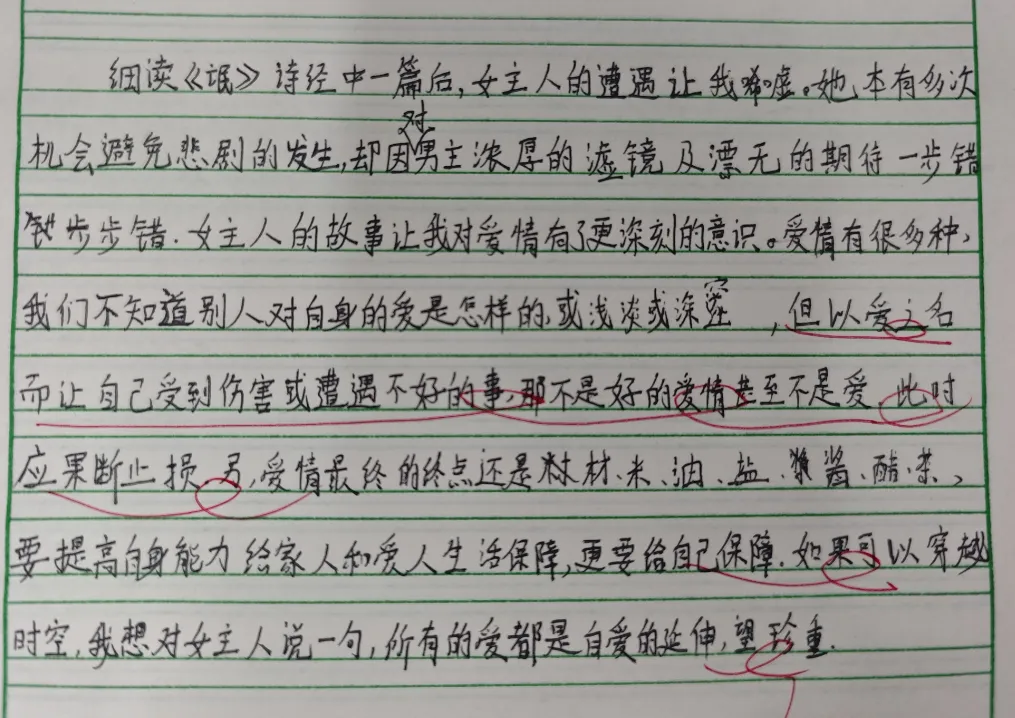 细读《氓》诗经中一篇后,女主人的遭遇让我唏嘘。她本有多次
机会避免悲剧的发生,却因对男主浓厚的滤镜及漂无的期待一步错
步步错.女主人的故事让我对爱情有了更深刻的意识。爱情有很多种,
我们不知道别人对自身的爱是怎样的,或浅淡或深密,但以爱之名
而让自己受到伤害或遭遇不好的事,那不是好的爱情甚至不是爱.此时
应果断止损.另,爱情最终的终点还是材、米、油、盐、酱、醋、茶、
要提高自身能力给家人和爱人生活保障,更要给自己保障.如果可以穿越
时空,我想对女主人说一句,所有的爱都是自爱的延伸,望珍重.